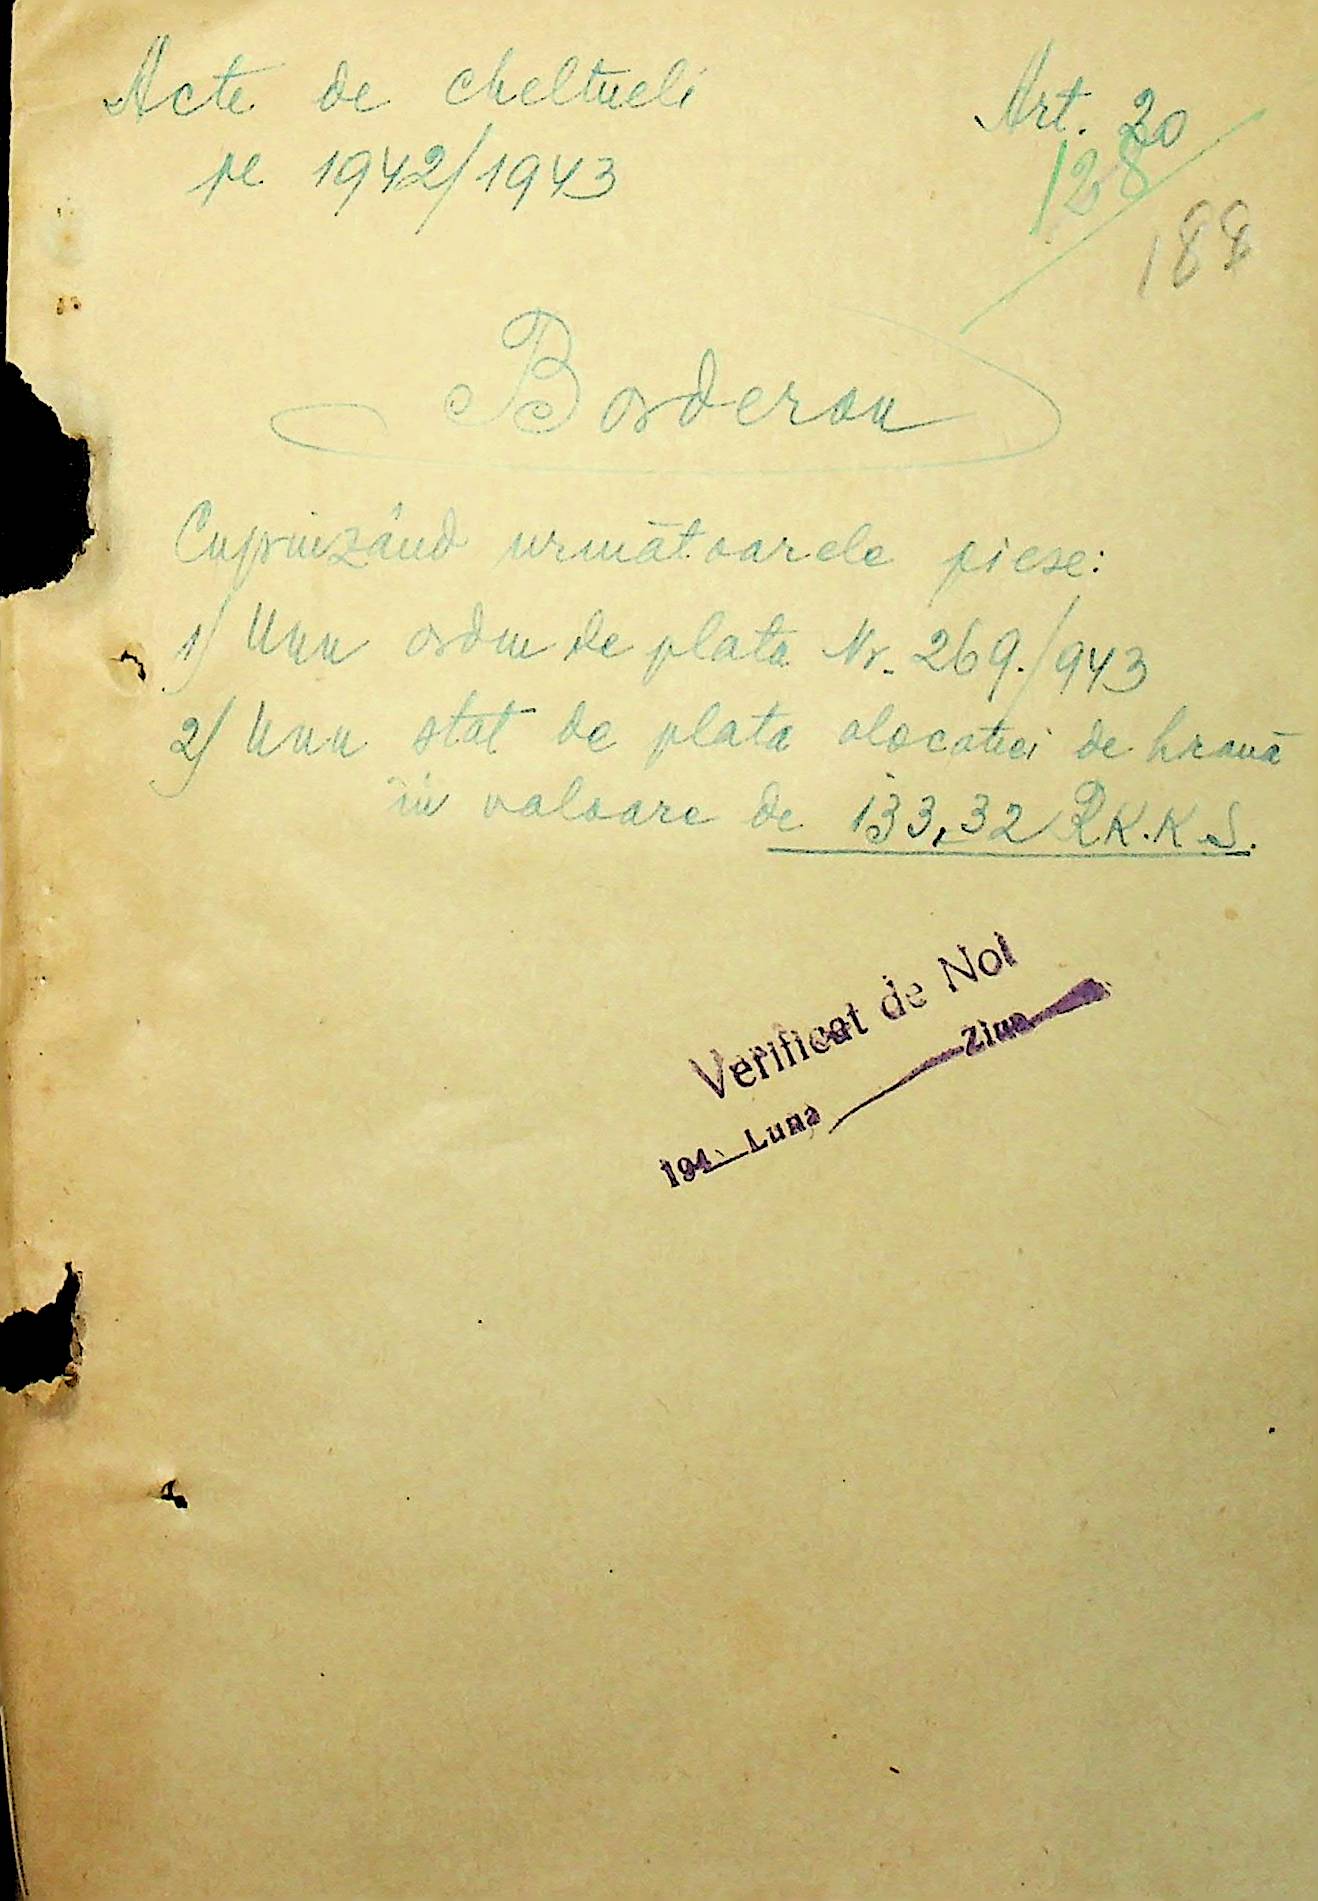 Acte de cheltueli
pe 1942/1943
Art. 20
128
188
Borderou
Cuprinzând următoarele piese:
1) Unu ordin de plata Nr. 269./943
2) Unu stat de plata alocatiei de hrană
în valoare de 133,32 R.K.K.S.
Verificat de Noi
194 Luna Ziua